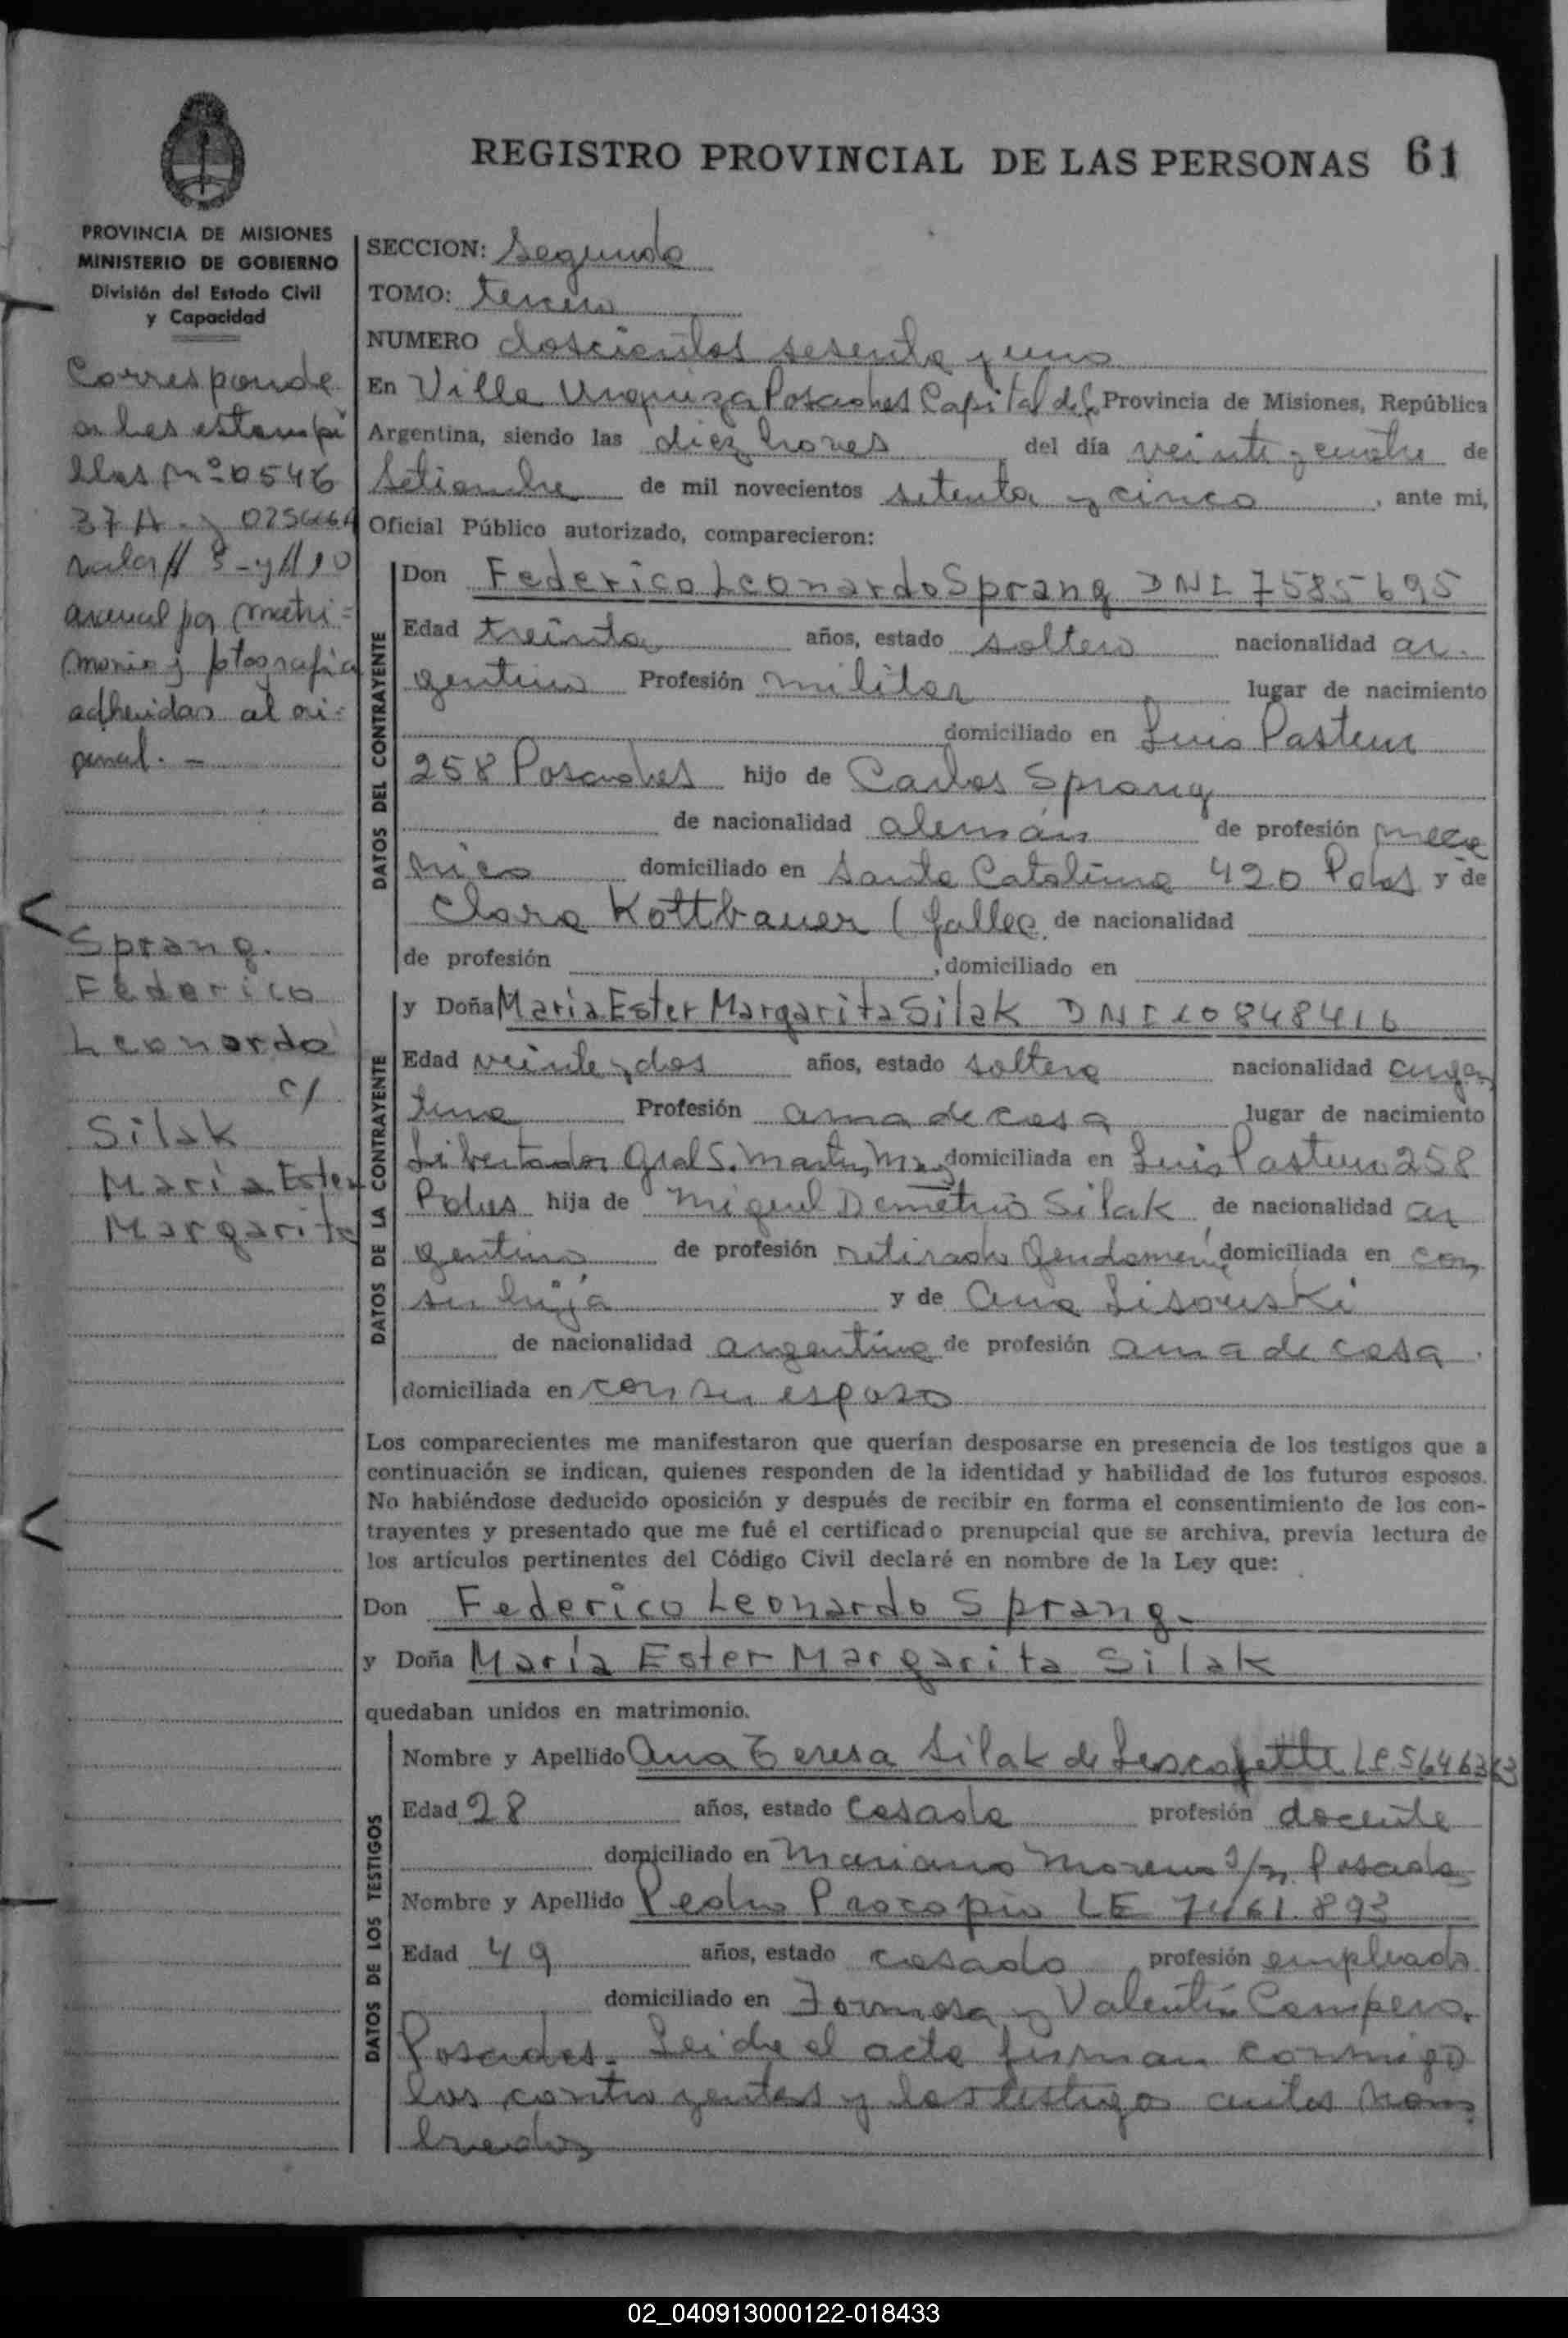 REGISTRO PROVINCIAL DE LAS PERSONAS 61
PROVINCIA DE MISIONES
MINISTERIO DE GOBIERNO
División del Estado Civil
y Capacidad
Corresponde
a las estampi
llas Nº 0546
37 A. y
valor $ 5 - y $ 10
arancel por matri=
monio y fotografia
adheridas al ori=
ginal. -
Sprang.
Federico
Leonardo
c/
Silak
María Ester
Margarita
SECCION: Segunda
TOMO: tercero
NUMERO doscientos sesenta y uno
En Villa Urquiza Posadas Capital de la Provincia de Misiones, República
Argentina, siendo las diez horas del día veinte y cuatro de
Setiembre de mil novecientos setenta y cinco, ante mi,
Oficial Público autorizado, comparecieron:
DATOS DEL CONTRAYENTE
Don Federico Leonardo Sprang DNI 7585695
Edad treinta años, estado soltero nacionalidad ar-
gentino Profesión militar lugar de nacimiento
domiciliado en Luis Pasteur
258 Posadas hijo de Carlos Sprang
de nacionalidad alemán de profesión meca
nico domiciliado en Santa Catalina 420 Pdas y de
Clara Kottbauer (fallec. de nacionalidad
de profesión , domiciliado en
DATOS DE LA CONTRAYENTE
y Doña María Ester Margarita Silak DNI 10848416
Edad veinte y dos años, estado soltera nacionalidad argen
tina Profesión ama de casa lugar de nacimiento
Libertador Gral S. Martin, Mnes domiciliada en Luis Pasteur 258
Pdas hija de Miguel Demetrio Silak de nacionalidad ar
gentino de profesión retirado Gendarmeri, domiciliada en con
su hija y de Ana Lisowski
de nacionalidad argentina de profesión ama de casa.
domiciliada en con su esposo
Los comparecientes me manifestaron que querían desposarse en presencia de los testigos que a
continuación se indican, quienes responden de la identidad y habilidad de los futuros esposos.
No habiéndose deducido oposición y después de recibir en forma el consentimiento de los con-
trayentes y presentado que me fué el certificado prenupcial que se archiva, previa lectura de
los artículos pertinentes del Código Civil declaré en nombre de la Ley que:
Don Federico Leonardo Sprang.
y Doña María Ester Margarita Silak
quedaban unidos en matrimonio.
DATOS DE LOS TESTIGOS
Nombre y Apellido Ana Teresa Silak de LC 5646363
Edad 28 años, estado casada profesión docente
domiciliado en Mariano Moreno S/n, Posadas
Nombre y Apellido Pedro Procopio LE 7461.893
Edad 49 años, estado casado profesión empleado
domiciliado en Formosa y Valentín Campero.
Posadas. Leida el acta firman conmigo
los contrayentes y los testigos antes nom
brados
02_040913000122-018433